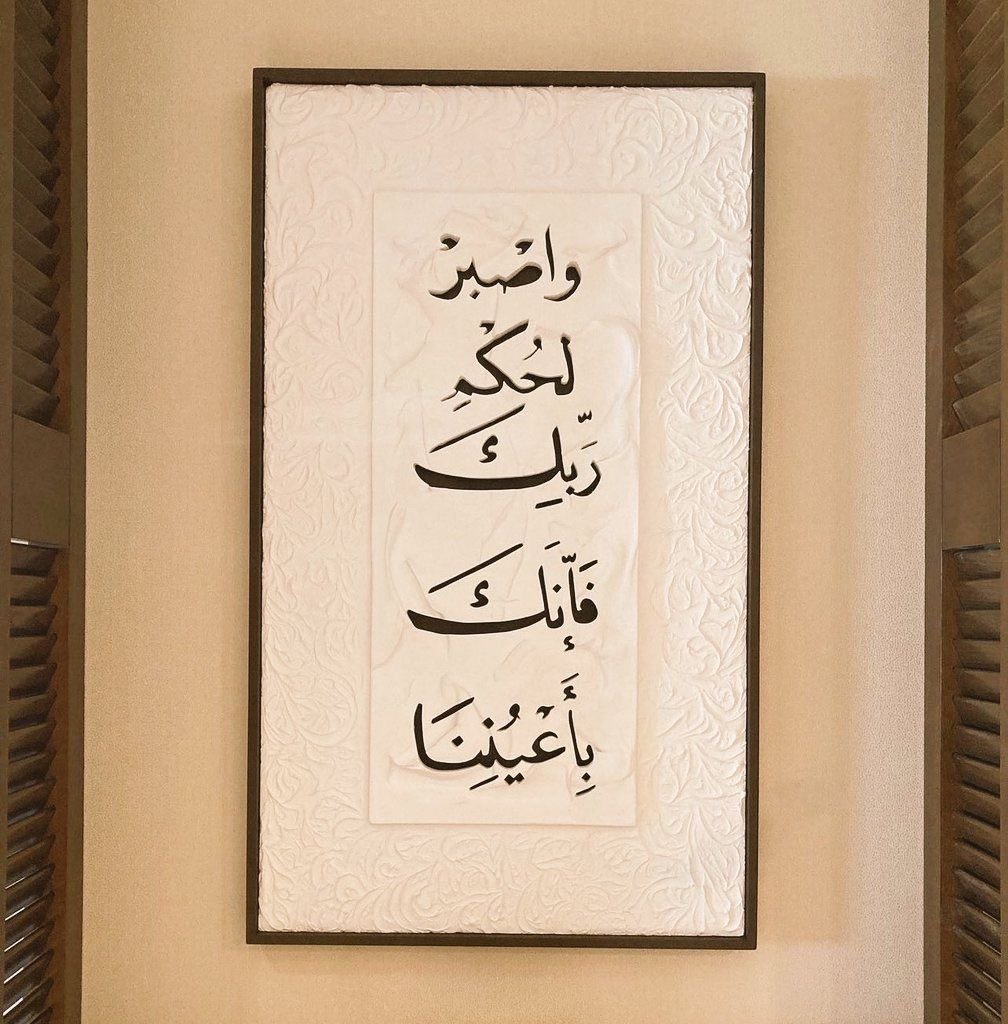 واصْبرْ
لحُكْمِ
رَبّلِكَ
فَإّنَكَ
بِأَعْيُنِنَا